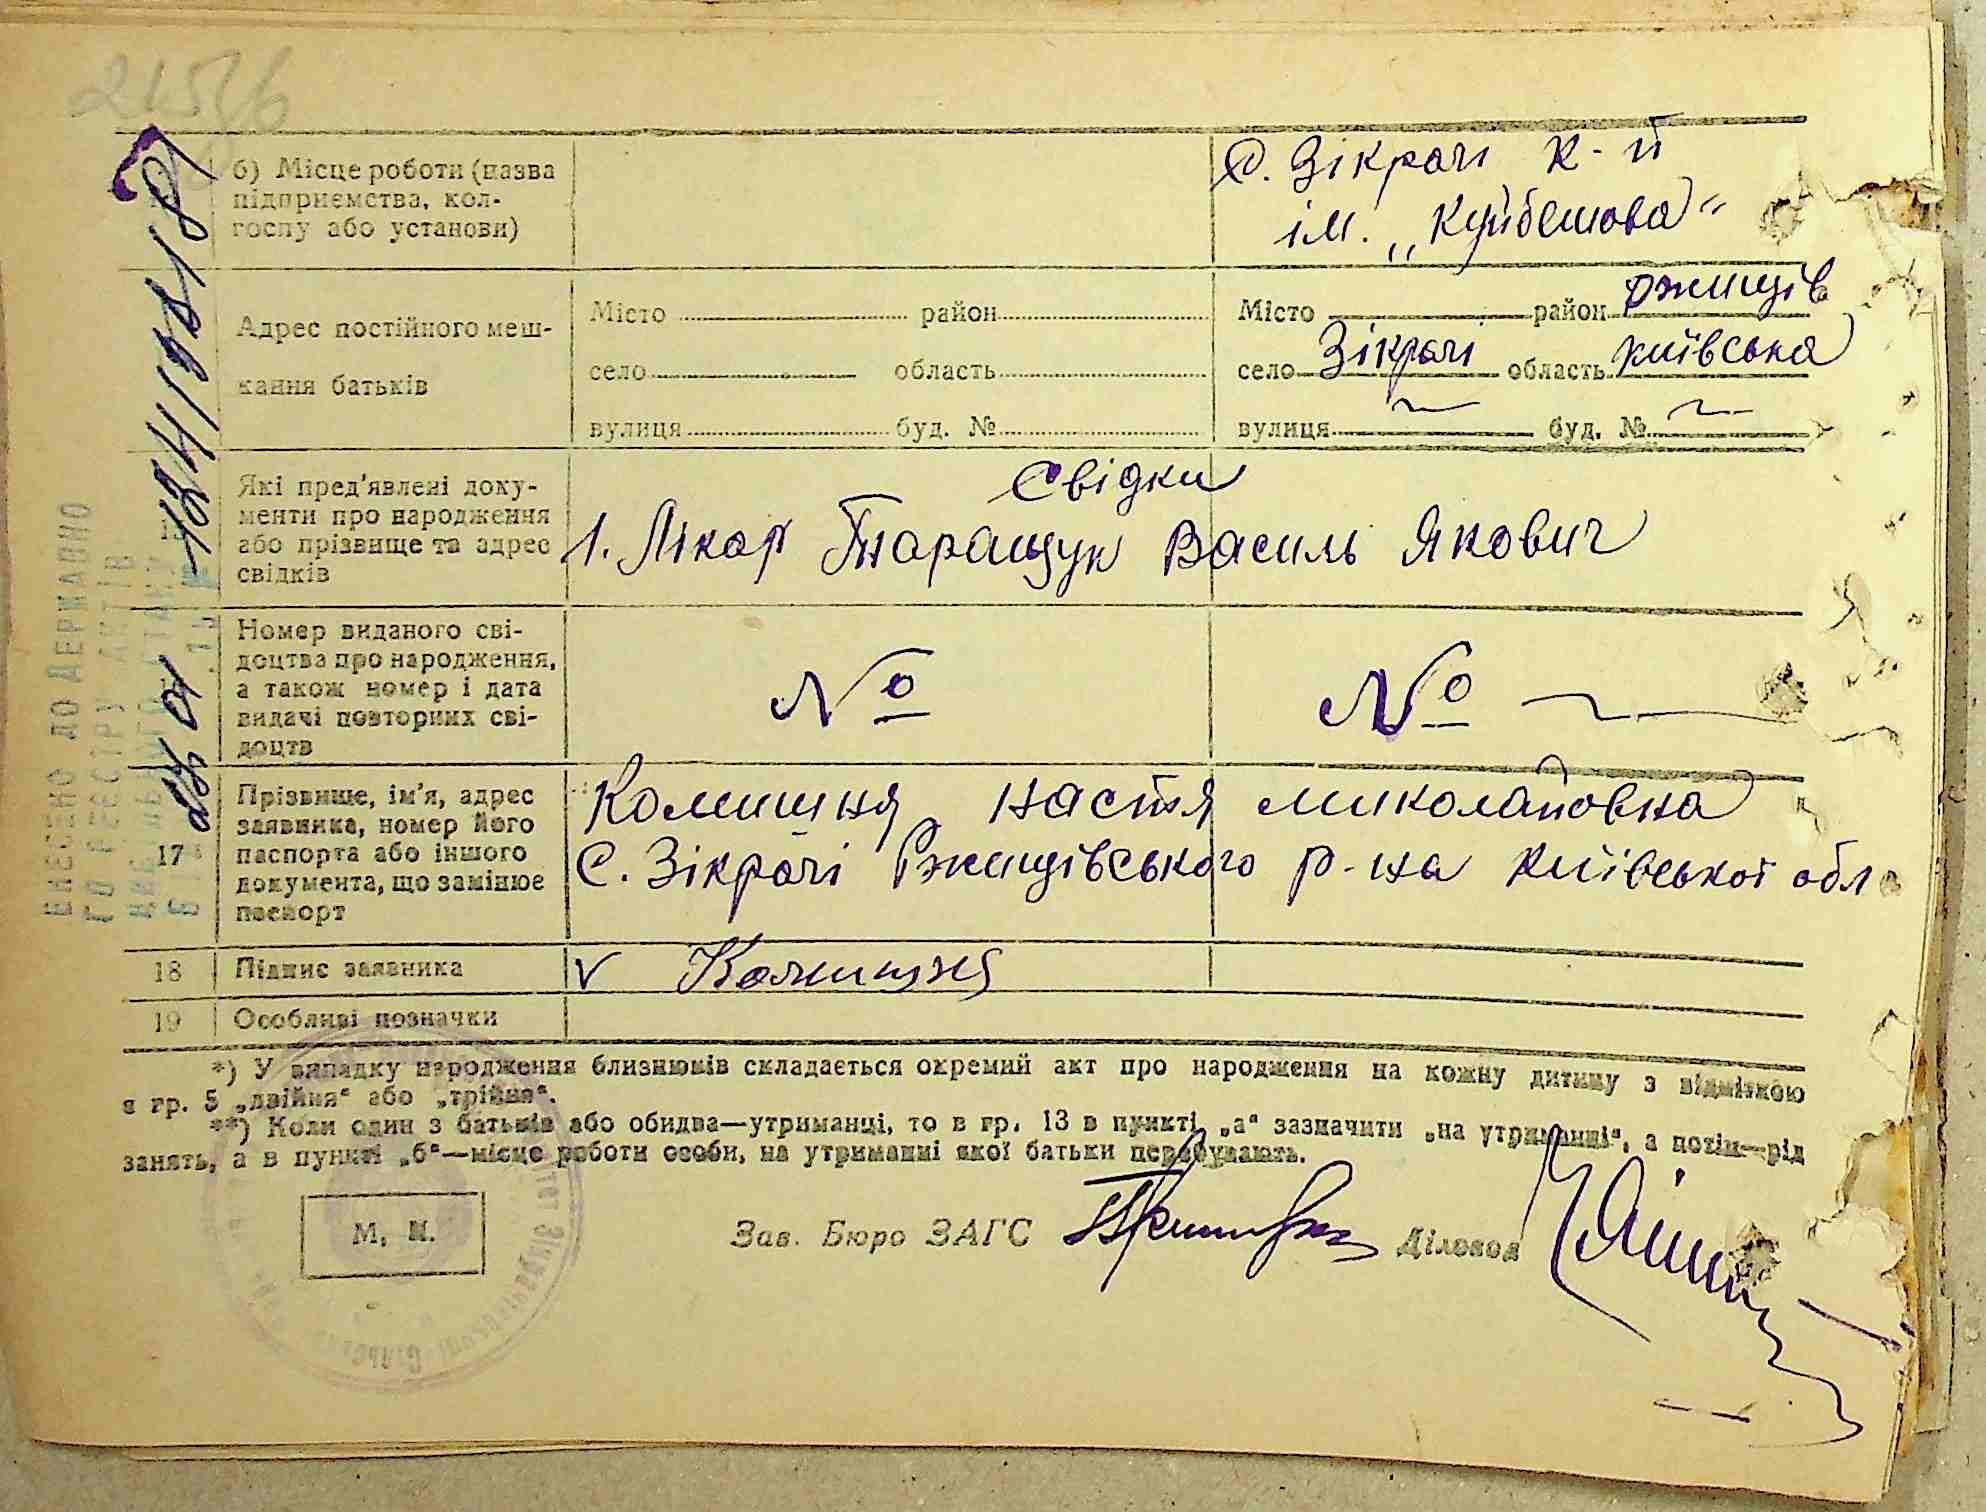 215
б) Місце роботи (назва
підприємства, кол-
госпу або установи)
с. Зікрачі к-п
ім. „Куйбешова"
Адрес постійного меш-
кання батьків
Місто район
село область
вулиця буд. №
Місто район Ржищів
село Зікрачі область Київська
вулиця буд. №
Які пред'явлені доку-
менти про народження
або прізвище та адрес
свідків
Свідки
1. Лікар Таращук Василь Якович
Номер виданого сві-
доцтва про народження,
а також номер і дата
видачі повторних сві-
доцтв
№
№
17
Прізвище, ім'я, адрес
заявника, номер його
паспорта або іншого
документа, що замінює
паспорт
Комишня Настя Миколайовна
С. Зікрачі Ржищівського р-на Київської обл
18 Підпис заявника
v Комишня
19 Особливі позначки
*) У випадку народження близнюків складається окремий акт про народження на кожну дитину з відміткою
в гр. 5 „двійня" або „трійня".
**) Коли один з батьків або обидва—утриманці, то в гр. 13 в пункті „а" зазначити „на утриманні", а потім—рід
занять, а в пункті „б"—місце роботи особи, на утриманні якої батьки перебувають.
М. П.
Зав. Бюро ЗАГС
Діловод
ВНЕСЕНО ДО ДЕРЖАВНО
ГО РЕЄСТРУ АКТІВ